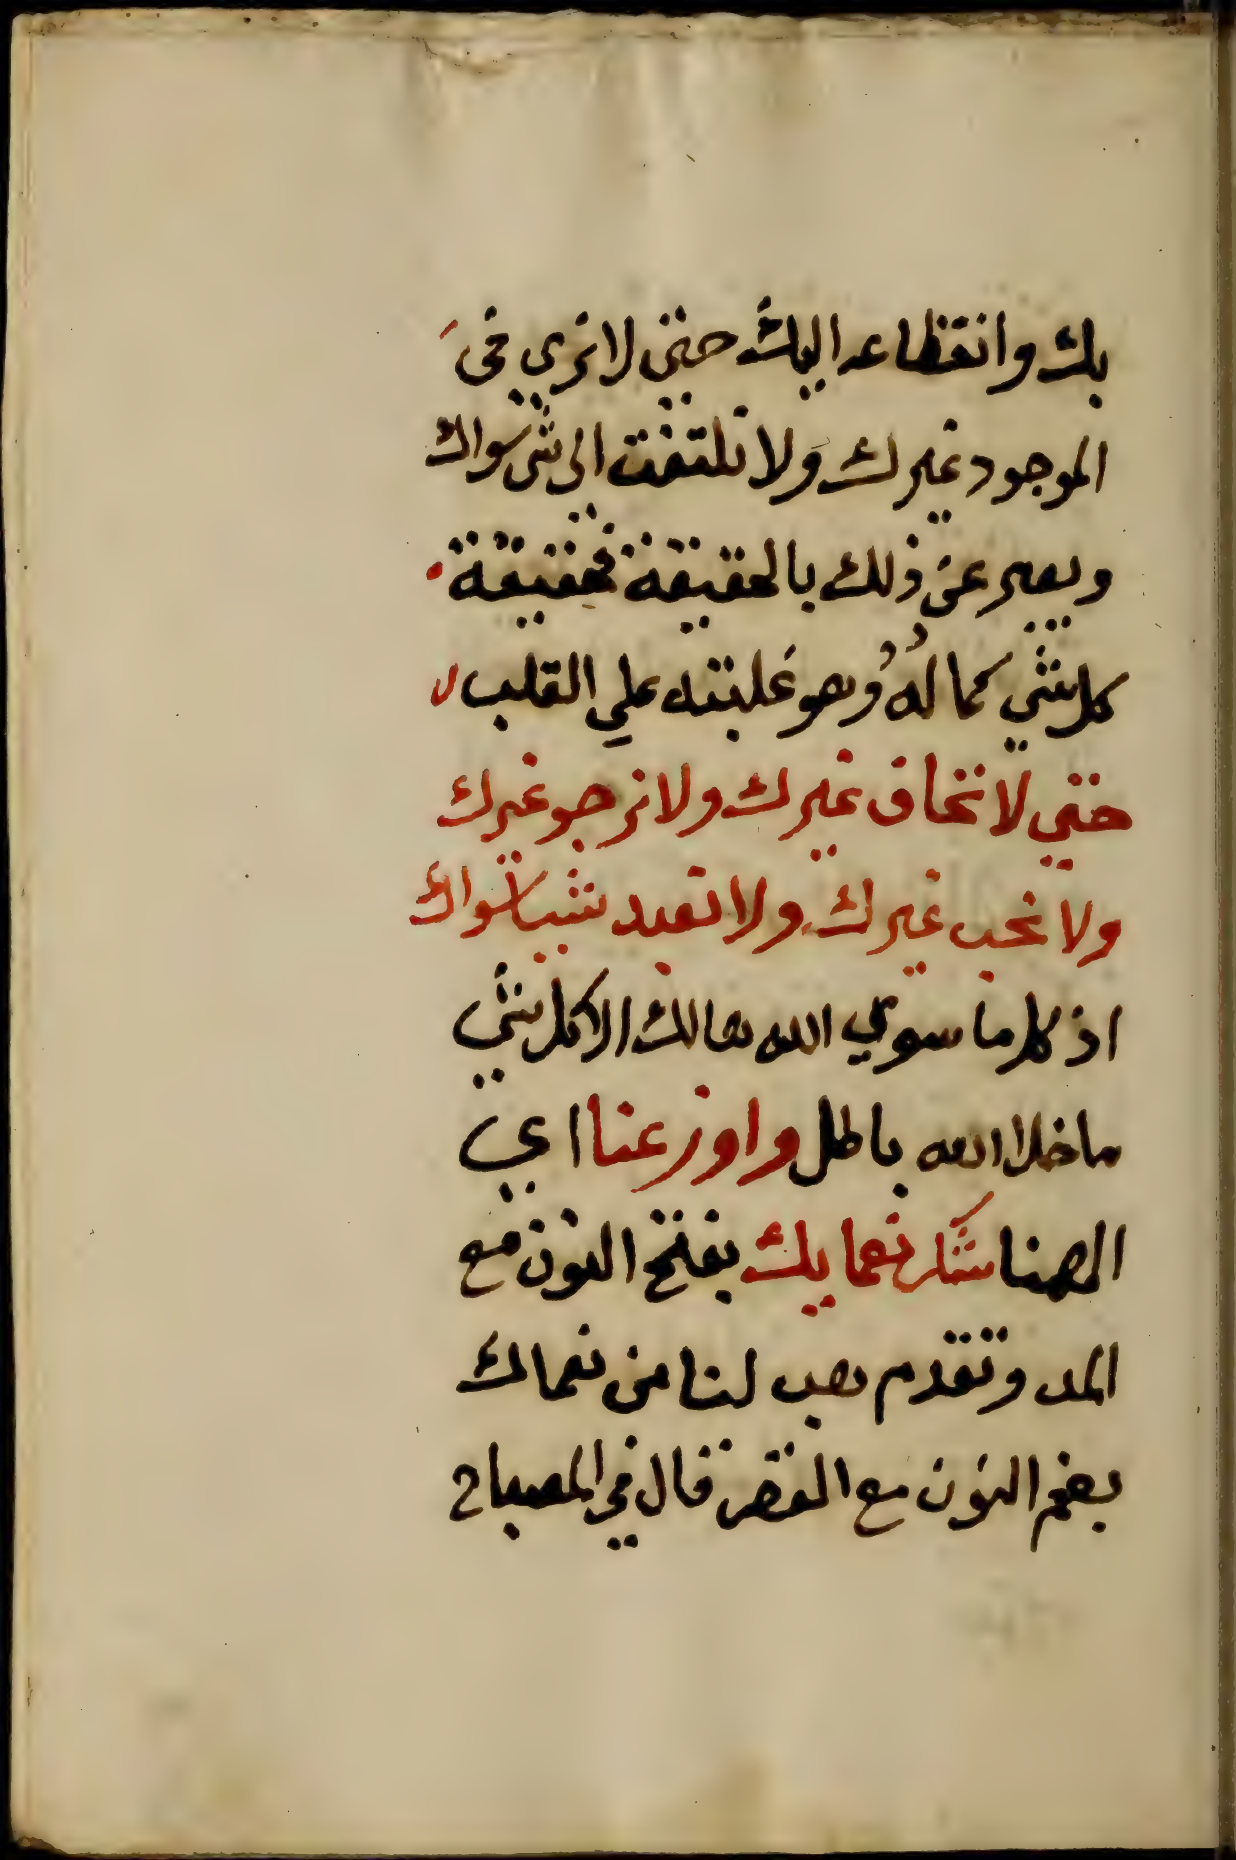 بك وانقطاعه اليك حتي لا نري في
الموجود غيرك ولا نلتفت الي شي سواك
ويعبر عن ذلك بالحقيقة فحقيقة
كل شي كماله وهو غلبته علي القلب
حتي لا نخاف غيرك ولا نرجو غيرك
ولا نحب غيرك ولا نعبد شيا سواك
اذ كل ما سوي الله هالك الا كل شي
ما خلا الله باطل واوزعنا اي
الهمنا شكر نعمايك بفتح النون مع
المد وتقدم هب لنا من نعماك
بضم النون مع القصر قال في المصباح